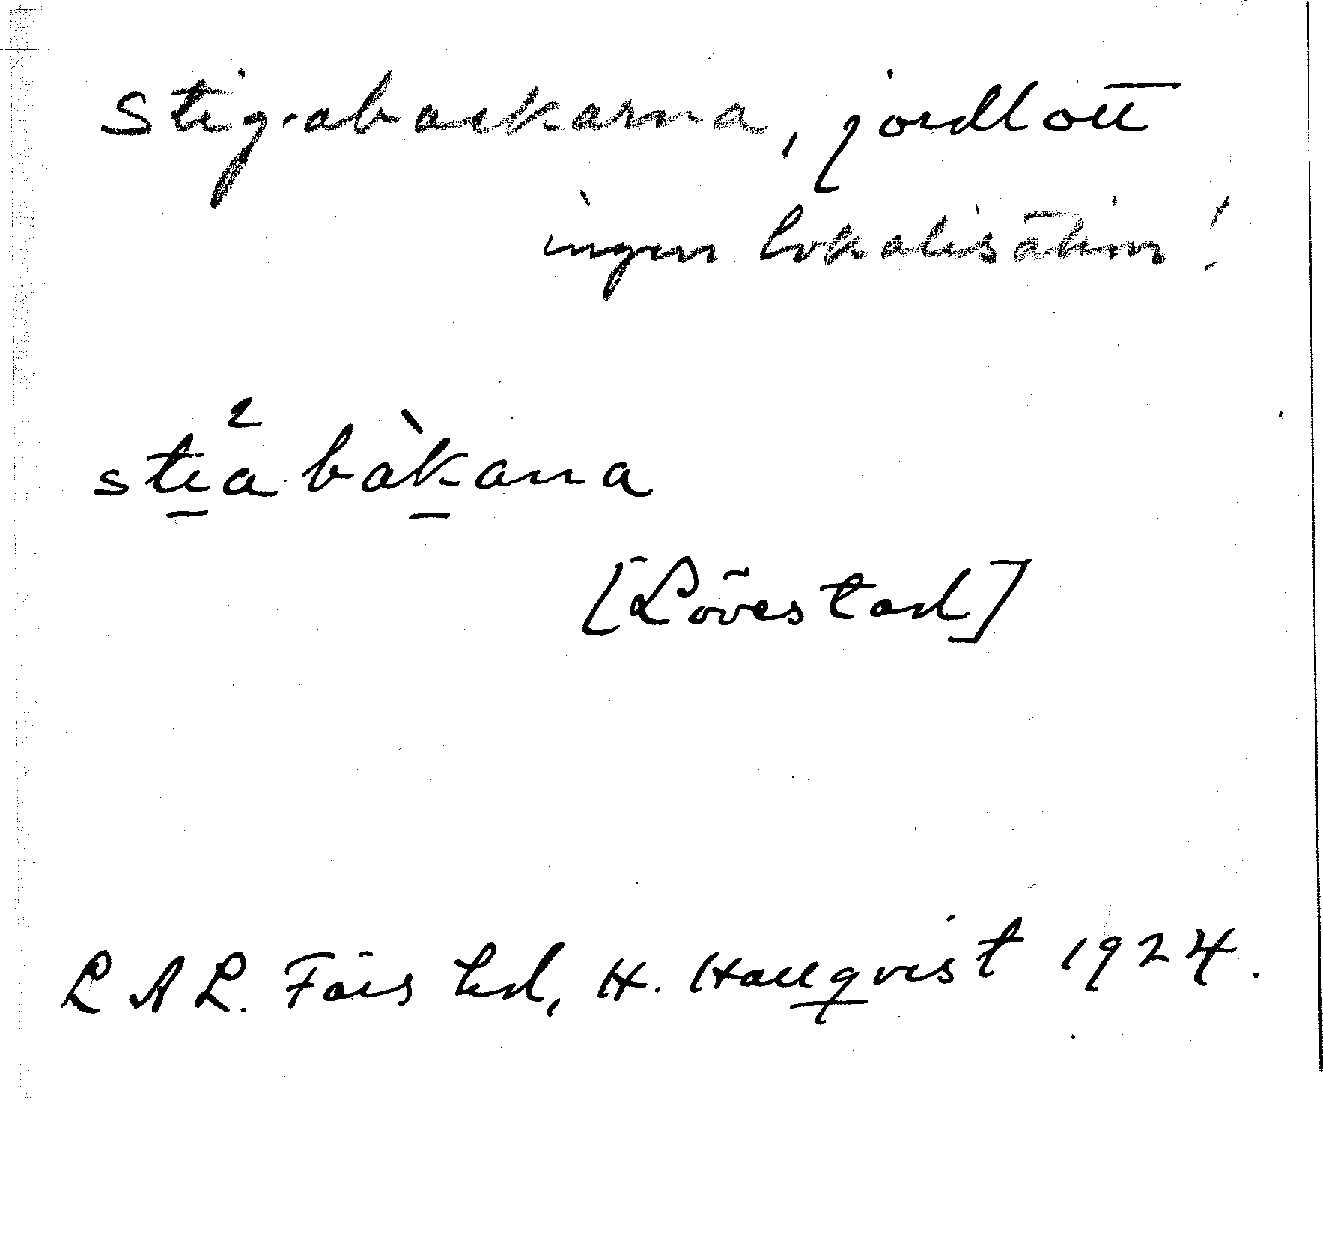 Stigabackarna, jordlott
ingen lokalisation!
stiabàkana
[Lövestad]
L A L. Färs hd, H. Hallqvist 1924.